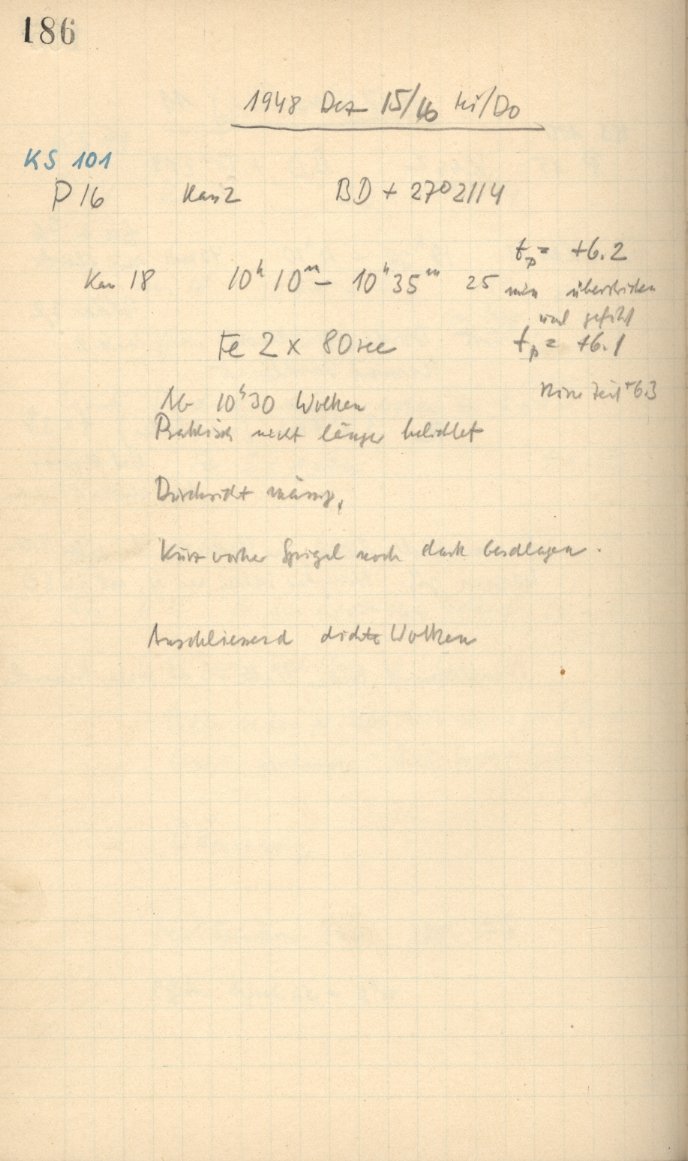 186
1948 Dez 15/16 Mi/Do
KS 101
P 16 Kas 2 BD + 27° 2114
t_p = +6.2
Kas 18 10ʰ 10ᵐ – 10ʰ 35ᵐ 25 min überstrichen
und geführt
Fe 2 x 80 sec t_p = +6.1
Zeit +6.3
Ab 10ʰ30 Wolken
Praktisch nicht länger belichtet
Durchsicht mässig,
Kurz vorher Spiegel noch stark beschlagen.
Anschliessend dichte Wolken